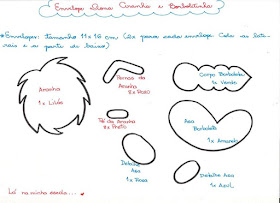 Envelope Dona Aranha e Borboletinha
Envelope: Tamanho 11x16 cm (2x para cada envelope. Cola as late
rais e a parte de baixo)
Aranha
1x Lilás
Pernas da
Aranha
8x Roxo
Corpo Borboleta
1x Verde
Pé da Aranha
8x Preto
Asa
Borboleta
1x Amarelo
Detalhe
Asa
1x Rosa
Detalhe Asa
1x Azul
Lá na minha escola...